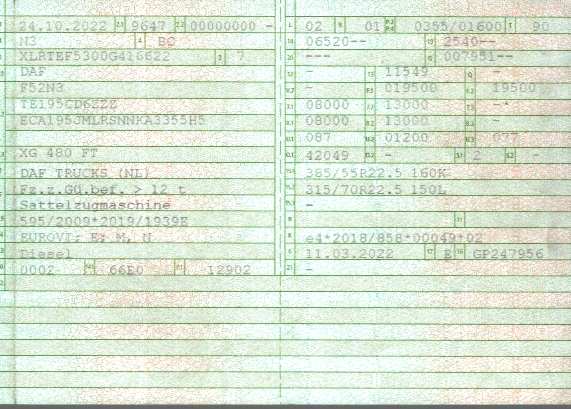 24.10.2022 2.1 9647 2.2 00000000 -
N3 4 BC
XLRTEF5300G416622 3 7
DAF
F52N3
TE195CD6ZZZ
ECA195JMLRSNNKA3355H5
XG 480 FT
DAF TRUCKS (NL)
Fz.z.Gü.bef. > 12 t
Sattelzugmaschine
595/2009*2019/1939E
EUROVI; E; M, N
Diesel
0002 66E0 12902
02 01 0355/01600 90
06520-- 2540--
--- 007951--
- 11549 -
- 019500 19500
08000 13000 -
08000 13000 -
087 01200 077
42049 - 2 -
385/55R22.5 160K
315/70R22.5 150L
-
e4*2018/858*00049*02
11.03.2022 E GP247956
-